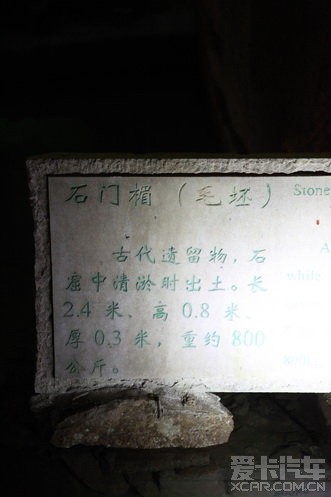 石门楣（毛坯） Stone
古代遗留物，石
窟中清淤时出土。长
2.4 米、高 0.8 米、
厚 0.3 米，重约 800
公斤。
A
while
爱卡汽车
XCAR.COM.CN